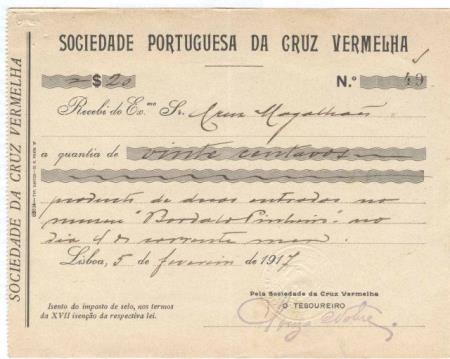 SOCIEDADE PORTUGUESA DA CRUZ VERMELHA
$20
N.º 49
Recebi do Ex.mo Sr. Cruz Magalhães
a quantia de vinte centavos
producto de duas entradas no
museu "Bordalo Pinheiro" no
dia 4 do corrente mez.
Lisboa, 5 de fevereiro de 1917
Pela Sociedade da Cruz Vermelha
O TESOUREIRO
Isento do imposto de selo, nos termos
da XVII isenção da respectiva lei.
SOCIEDADE DA CRUZ VERMELHA